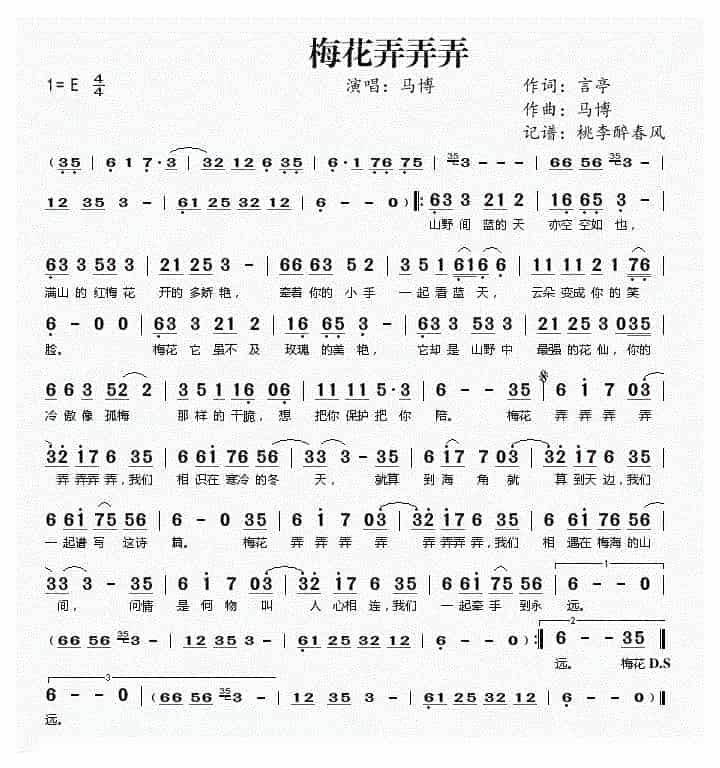 梅花弄弄弄
1=E 4/4 演唱：马博 作词：言亭
作曲：马博
记谱：桃李醉春风
(35 | 6 1 7·3 | 32 12 6 35 | 6·1 76 75 | 353 - - - | 66 56 353 - |
12 35 3 - | 61 25 32 12 | 6 - - 0) |: 63 3 21 2 | 16 65 3 - |
山野 间 蓝的 天 亦空 空如 也，
63 3 53 3 | 21 25 3 - | 63 3 5 2 | 3 5 1 616 6 | 2 11 2 1 76 |
满山 的 红梅 花 开的 多娇 艳， 牵着 你的 小 手 一 起 看 蓝 天， 云朵 变成 你 的 笑
6 - 0 0 | 63 3 21 2 | 16 65 3 - | 63 3 53 3 | 21 25 3 035 |
脸。 梅花 它 虽不 及 玫瑰 的美 艳， 它却 是 山野 中 最强 的花 仙，你的
6 6 3 52 2 | 3 5 1 16 06 | 11 11 5·3 | 6 - - 35 | 6 1 7 03 |
冷 傲 像 孤梅 那 样 的 干脆，想 把你 保护 把 你 陪。 梅花 弄 弄 弄 弄
32 17 6 35 | 6 61 76 56 | 33 3 - 35 | 6 17 03 | 32 17 6 35 |
弄 弄弄 弄，我们 相 识在 寒冷 的冬 天， 就算 到 海 角 就 算 到天 边，我们
6 61 75 56 | 6 - 0 35 | 6 1 7 03 | 32 17 6 35 | 6 61 76 56 |
一 起谱 写 这诗 篇。 梅花 弄 弄 弄 弄 弄 弄弄 弄，我们 相 遇在 梅海 的山
33 3 - 35 | 6 1 7 03 | 32 17 6 35 | 6 61 75 56 | 6 - - 0 |
间， 问情 是 何 物 叫 人 心相 连，我们 一 起牵 手 到永 远。
(66 56 353 - | 12 35 3 - | 61 25 32 12 | 6 - - 0) :| 6 - - 35 ‖
远。 梅花 D.S
6 - - 0 | (66 56 353 - | 12 35 3 - | 61 25 32 12 | 6 - - 0) ‖
远。